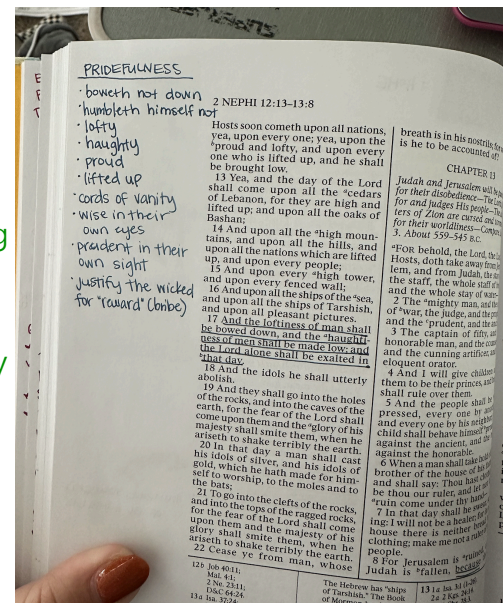 PRIDEFULNESS
· boweth not down
· humbleth himself not
· lofty
· haughty
· proud
· lifted up
· cords of vanity
· wise in their
own eyes
· prudent in their
own sight
· justify the wicked
for "reward" (bribe)
2 NEPHI 12:13–13:8
Hosts soon cometh upon all nations,
yea, upon every one; yea, upon the
b proud and lofty, and upon every
one who is lifted up, and he shall
be brought low.
13 Yea, and the day of the Lord
shall come upon all the a cedars
of Lebanon, for they are high and
lifted up; and upon all the oaks of
Bashan;
14 And upon all the a high moun-
tains, and upon all the hills, and
upon all the nations which are lifted
up, and upon every people;
15 And upon every a high tower,
and upon every fenced wall;
16 And upon all the ships of the a sea,
and upon all the ships of Tarshish,
and upon all pleasant pictures.
17 And the loftiness of man shall
be bowed down, and the a haughti-
ness of men shall be made low; and
the Lord alone shall be exalted in
b that day.
18 And the idols he shall utterly
abolish.
19 And they shall go into the holes
of the rocks, and into the caves of the
earth, for the fear of the Lord shall
come upon them and the a glory of his
majesty shall smite them, when he
ariseth to shake terribly the earth.
20 In that day a man shall cast
his idols of silver, and his idols of
gold, which he hath made for him-
self to worship, to the moles and to
the bats;
21 To go into the clefts of the rocks,
and into the tops of the ragged rocks,
for the fear of the Lord shall come
upon them and the majesty of his
glory shall smite them, when he
ariseth to shake terribly the earth.
22 Cease ye from man, whose
12 b Job 40:11;
Mal. 4:1;
2 Ne. 23:11;
D&C 64:24.
13 a Isa. 37:24;
The Hebrew has "ships
of Tarshish." The Book
of Mormon
breath is in his nostrils; for
is he to be accounted of?
CHAPTER 13
Judah and Jerusalem will be
for their disobedience—The Lord
for and judges His people—The
ters of Zion are cursed and
for their worldliness—Compare
3. About 559–545 B.C.
a For behold, the Lord, the
Hosts, doth take away from
lem, and from Judah, the
the staff, the whole staff of
and the whole stay of water—
2 The a mighty man, and the
of b war, the judge, and the
and the c prudent, and the
3 The captain of fifty,
honorable man, and the
and the cunning artificer,
eloquent orator.
4 And I will give children
them to be their princes, and
shall rule over them.
5 And the people shall be
pressed, every one by
and every one by his
child shall behave himself
against the ancient, and the
against the honorable.
6 When a man shall take
brother of the house of his
and shall say: Thou hast
be thou our ruler, and let
a ruin come under thy
7 In that day shall he
ing: I will not be a healer;
house there is neither
clothing; make me not a
people.
8 For Jerusalem is a ruined,
Judah is b fallen, because
13 1 a Isa. 3:1
2 a 2 Kgs. 24:14.